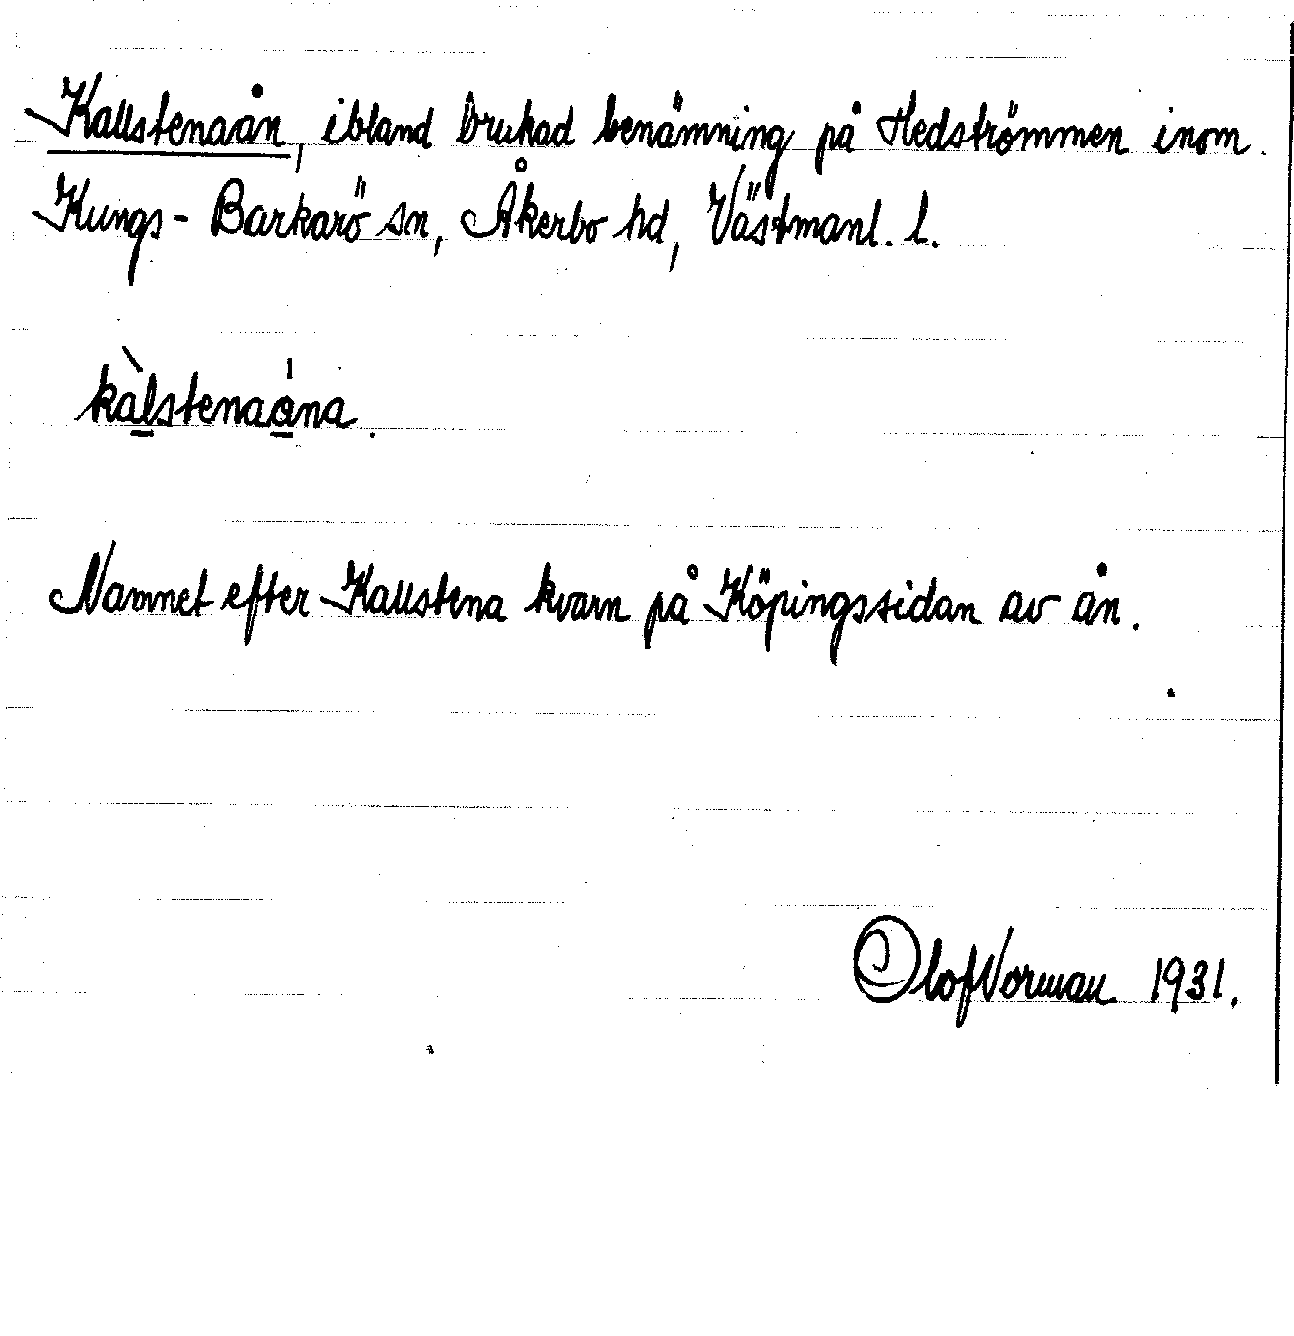 Kallstenaån, ibland brukad benämning på Hedströmmen inom
Kungs-Barkarö sn, Åkerbo hd, Västmanl. l.
kàlstenaåna.
Namnet efter Kallstena kvarn på Köpingssidan av ån.
Olof Norman 1931.